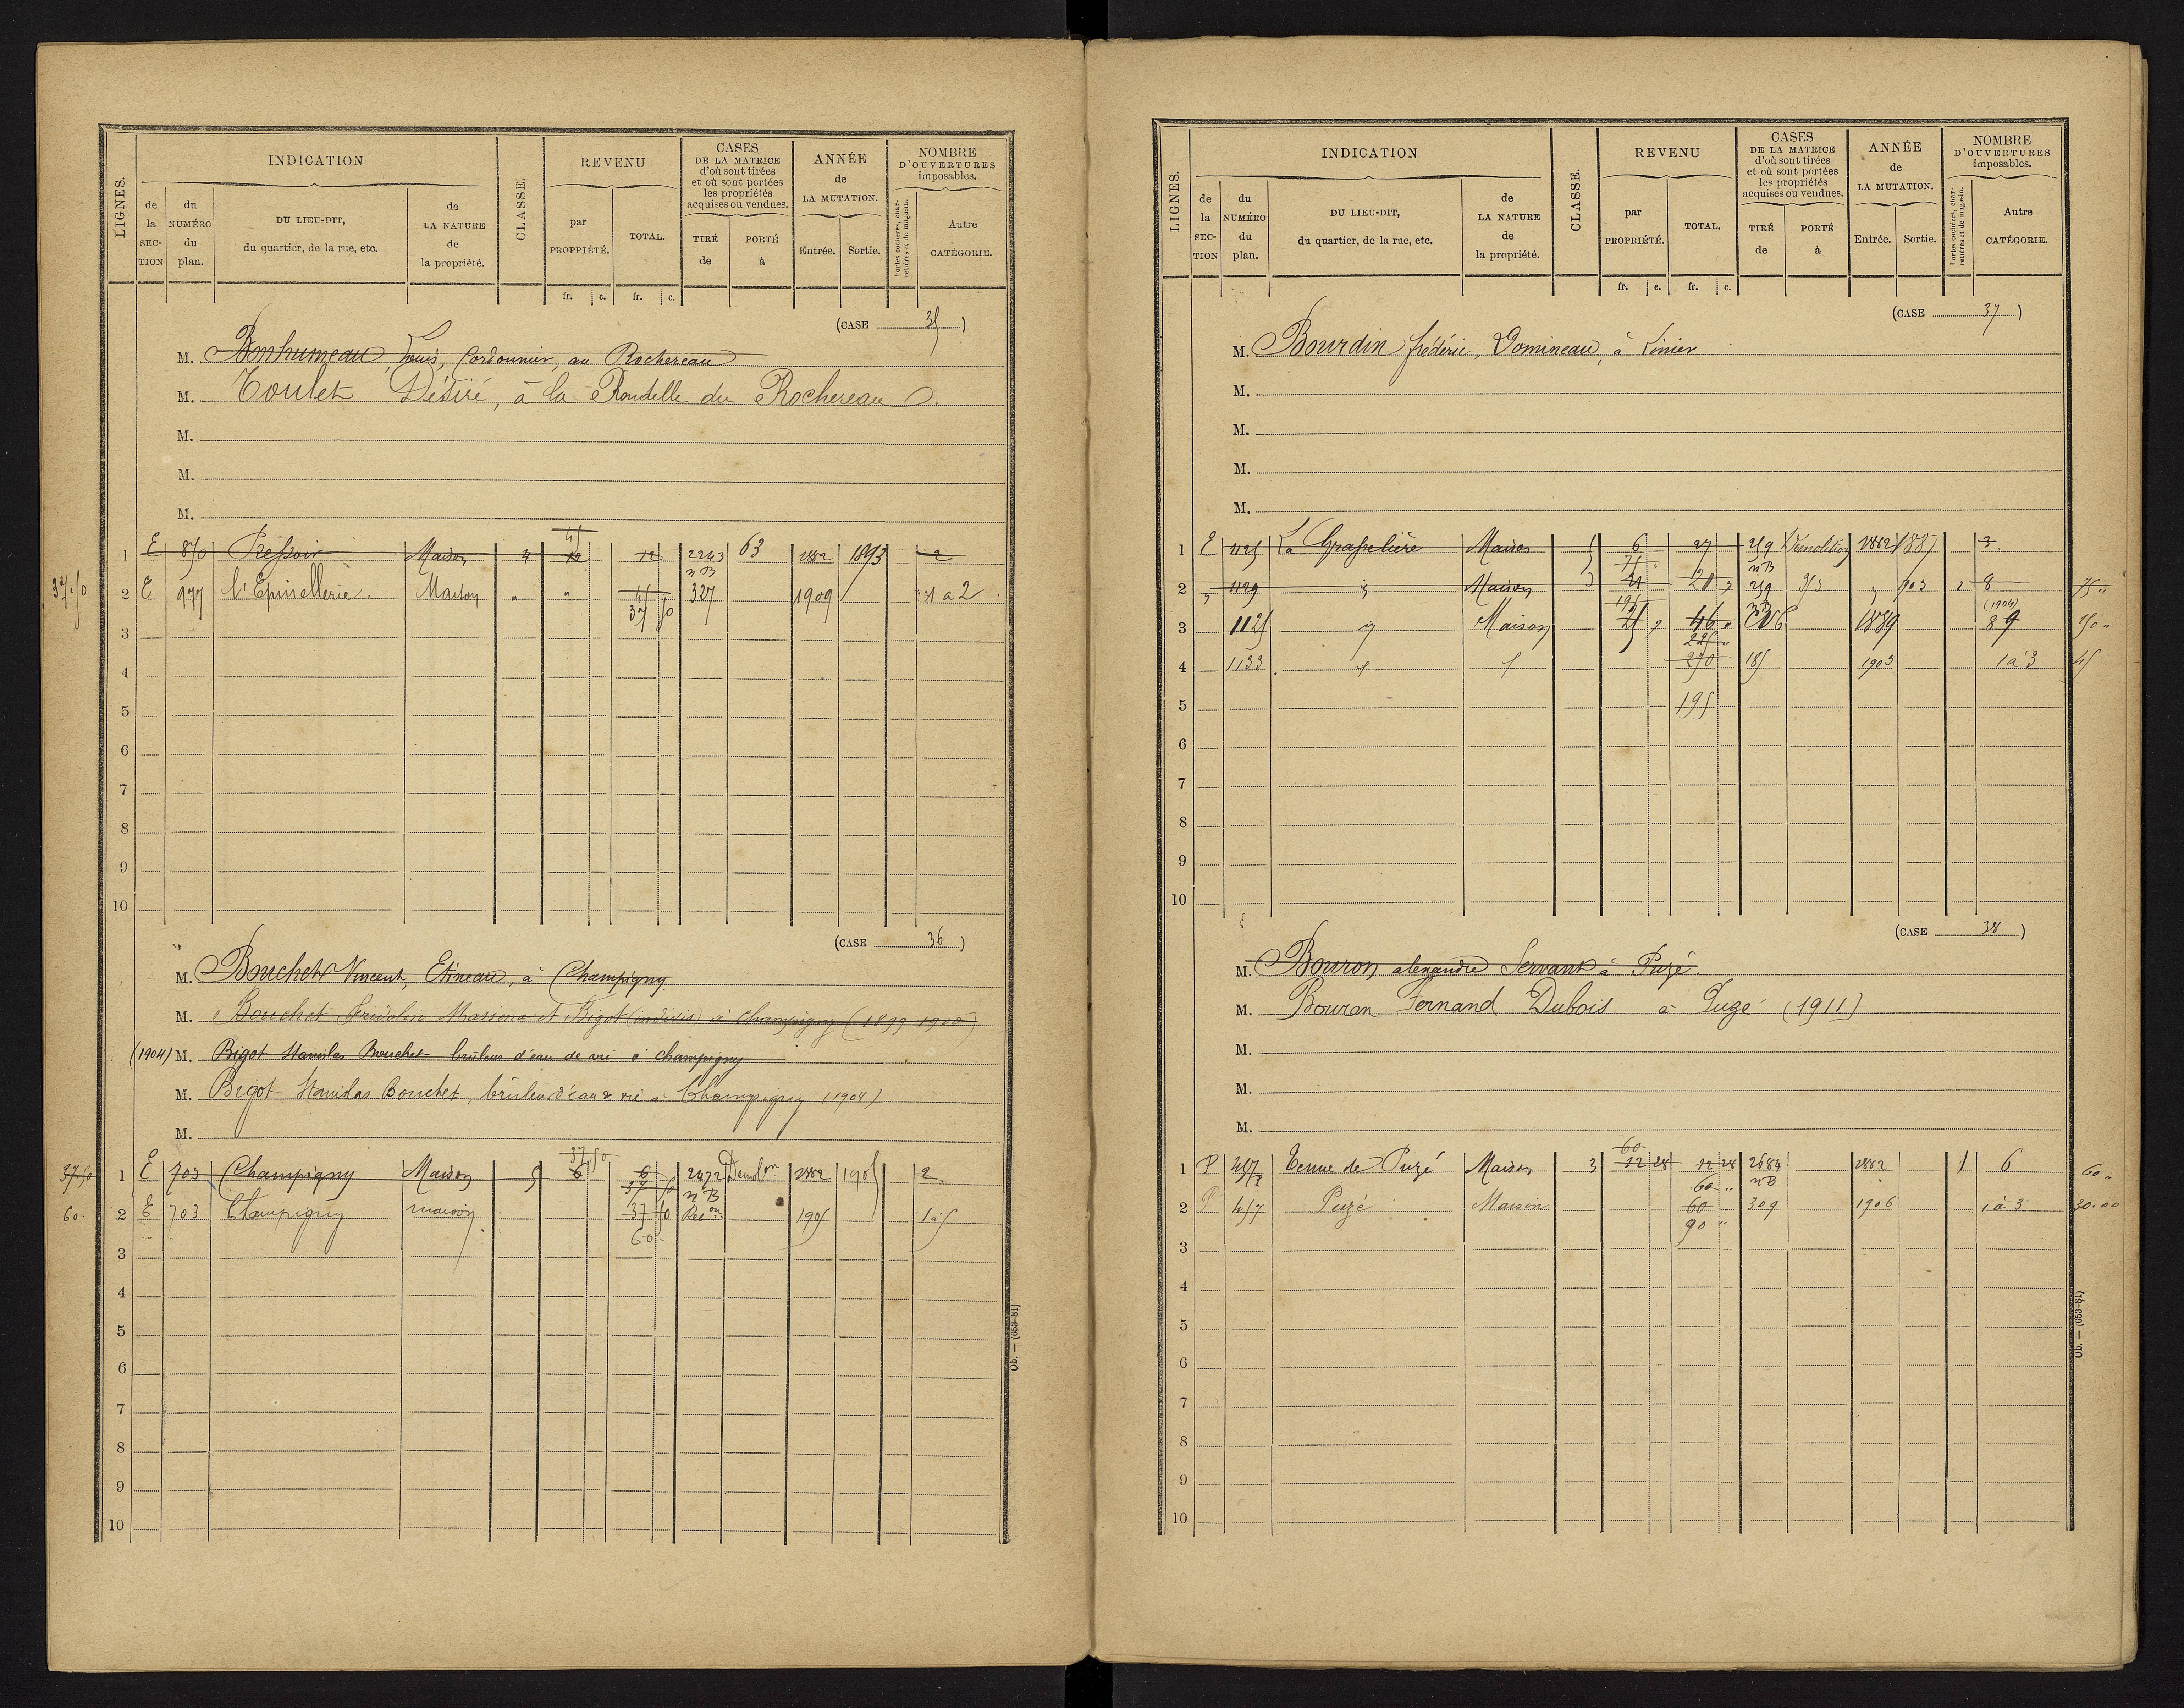 LIGNES.
INDICATION
CLASSE.
REVENU
CASES
DE LA MATRICE
d'où sont tirées
et où sont portées
les propriétés
acquises ou vendues.
ANNÉE
de
LA MUTATION.
NOMBRE
D'OUVERTURES
imposables.
de la SECTION
du NUMÉRO du plan.
DU LIEU-DIT,
du quartier, de la rue, etc.
de LA NATURE de la propriété.
par PROPRIÉTÉ.
TOTAL.
TIRÉ de
PORTÉ à
Entrée.
Sortie.
Portes cochères, charretières et de magasin.
Autre CATÉGORIE.
fr. c. fr. c.
(CASE 35)
M. Bonhumeau, Louis, Cordonnier, au Rochereau
M. Toulet Désiré, à la Rondelle du Rochereau
M.
M.
M.
1 E 850 Pressoir Maison 4 45 12 12 2243 63 1882 1893 2
n B
37.50 2 E 977 l'Epinellerie. Maison " " 45 327 1909 1 a 2
37 50
3
4
5
6
7
8
9
10
(CASE 36)
M. Bouchet Vincent, Etineau, à Champigny
M. Bouchet Fridolin Massena et Bigot (indivis) à Champigny (1899 1900)
(1904) M. Bigot Stanislas Bouchet brûleur d'eau de vie à champigny
M. Bigot Stanislas Bouchet, brûleur d'eau de vie à Champigny (1904)
M.
37.50
37.50 1 E 703 Champigny Maison 5 6 6 2472 Demol on 1882 1905 2
37 50 n B
60. 2 E 703 Champigny maison 37 50 Rec on 1905 1 à 5
60
3
4
5
6
7
8
9
10
Ob. — (653-81)
LIGNES.
INDICATION
CLASSE.
REVENU
CASES
DE LA MATRICE
d'où sont tirées
et où sont portées
les propriétés
acquises ou vendues.
ANNÉE
de
LA MUTATION.
NOMBRE
D'OUVERTURES
imposables.
de la SECTION
du NUMÉRO du plan.
DU LIEU-DIT,
du quartier, de la rue, etc.
de LA NATURE de la propriété.
par PROPRIÉTÉ.
TOTAL.
TIRÉ de
PORTÉ à
Entrée.
Sortie.
Portes cochères, charretières et de magasin.
Autre CATÉGORIE.
fr. c. fr. c.
(CASE 37)
M. Bourdin frédéric, Domineau, à Linier
M.
M.
M.
M.
1 E 1125 La Grapelière Maison 5 6 27 259 Démolition 1882 1887 3
75 n B
2 " 1129 " Maison 3 21 259 " 903 2 8 75 "
n B (1904)
3 1125 " Maison 46 " CN 1889 8 9 150 "
225 "
4 1133 270 185 1903 1 à 3 45
5 195
6
7
8
9
10
(CASE 38)
M. Bouron alexandre Servant à Puzé.
M. Bouron Fernand Dubois à Puzé (1911)
M.
M.
M.
60
1 P 457 Tenue de Puzé Maison 3 12 28 12 28 2684 1882 1 6 60 "
60 " n B
2 P 457 Puzé Maison 60 309 1906 1 à 3 30.00
90 "
3
4
5
6
7
8
9
10
Ob. — (653-81)